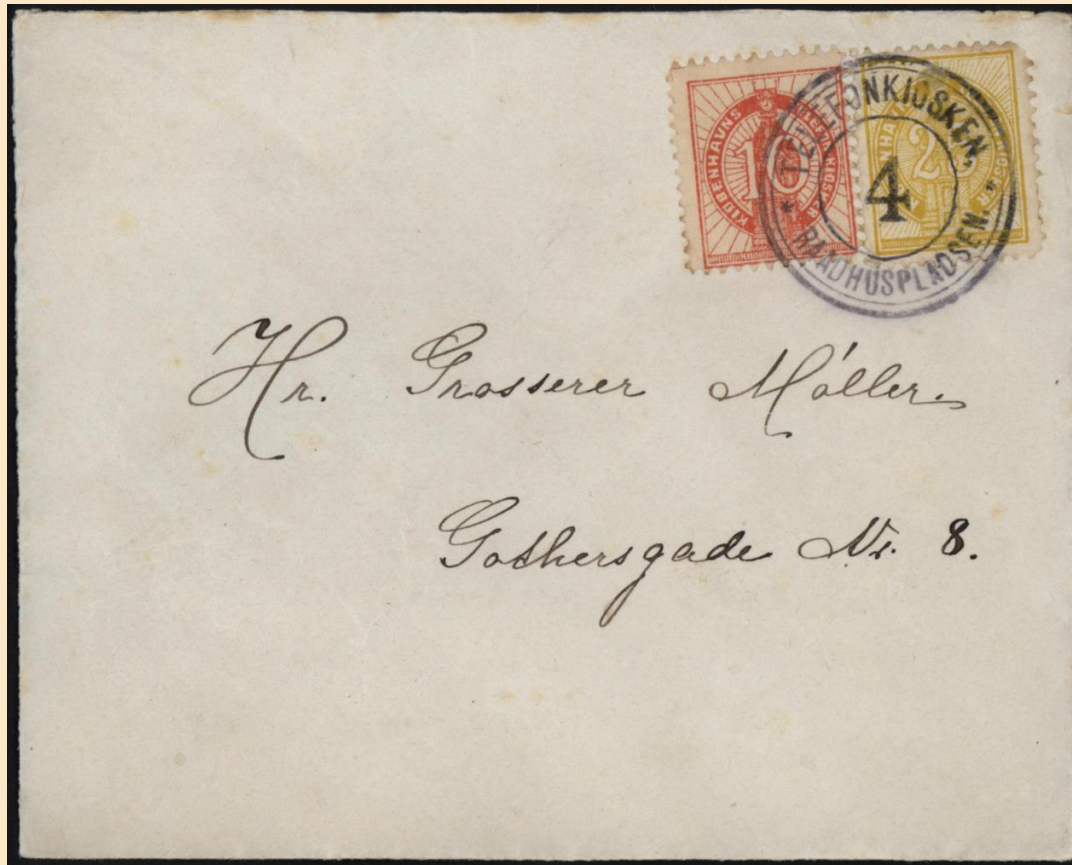 KJØBENHAVNS TELEFON KIOSKER
10
2
TELEFONKIOSKEN,
4
* RAADHUSPLADSEN. *
Hr. Grosserer Móller.
Gothersgade Nr. 8.